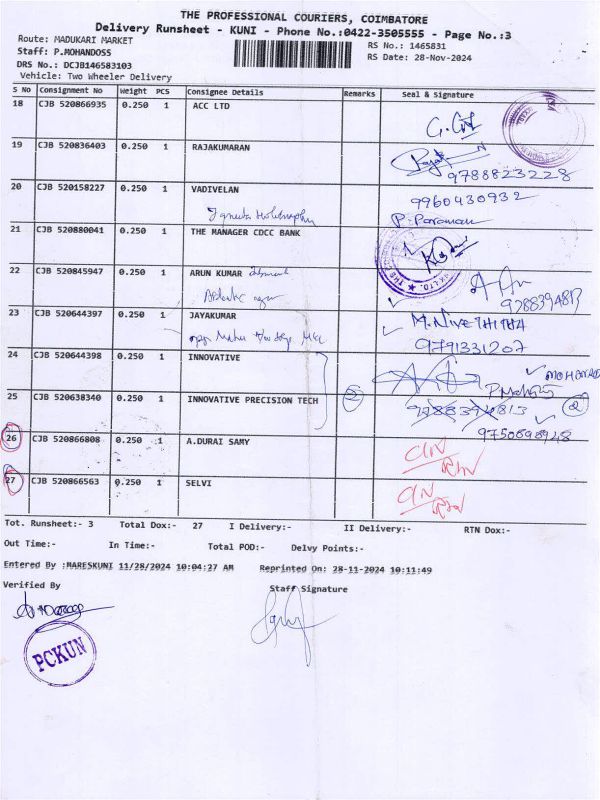 THE PROFESSIONAL COURIERS, COIMBATORE
Delivery Runsheet - KUNI - Phone No.:0422-3505555 - Page No.:3
Route: MADUKARI MARKET
RS No.: 1465831
Staff: P.MOHANDOSS
RS Date: 28-Nov-2024
DRS No.: DCJB146583103
Vehicle: Two Wheeler Delivery
S No Consignment No Weight PCS Consignee Details Remarks Seal & Signature
18 CJB 520866935 0.250 1 ACC LTD
19 CJB 520836403 0.250 1 RAJAKUMARAN
9788823228
20 CJB 520158227 0.250 1 VADIVELAN 9960430932
P. Paraman
21 CJB 520880041 0.250 1 THE MANAGER CDCC BANK
22 CJB 520845947 0.250 1 ARUN KUMAR
9288394813
23 CJB 520644397 0.250 1 JAYAKUMAR M.NIVETHITHA
9791331207
24 CJB 520644398 0.250 1 INNOVATIVE
25 CJB 520638340 0.250 1 INNOVATIVE PRECISION TECH 2 9788394813 2
9750898948
26 CJB 520866808 0.250 1 A.DURAI SAMY
27 CJB 520866563 0.250 1 SELVI
Tot. Runsheet:- 3 Total Dox:- 27 I Delivery:- II Delivery:- RTN Dox:-
Out Time:- In Time:- Total POD:- Delvy Points:-
Entered By :MARESKUNI 11/28/2024 10:04:27 AM Reprinted On: 28-11-2024 10:11:49
Verified By Staff Signature
PCKUN